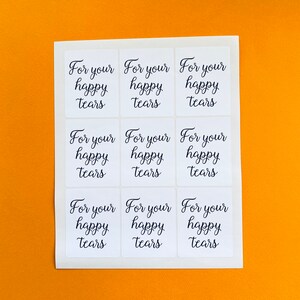 For your For your For your
happy happy happy
tears tears tears
For your For your For your
happy happy happy
tears tears tears
For your For your For your
happy happy happy
tears tears tears